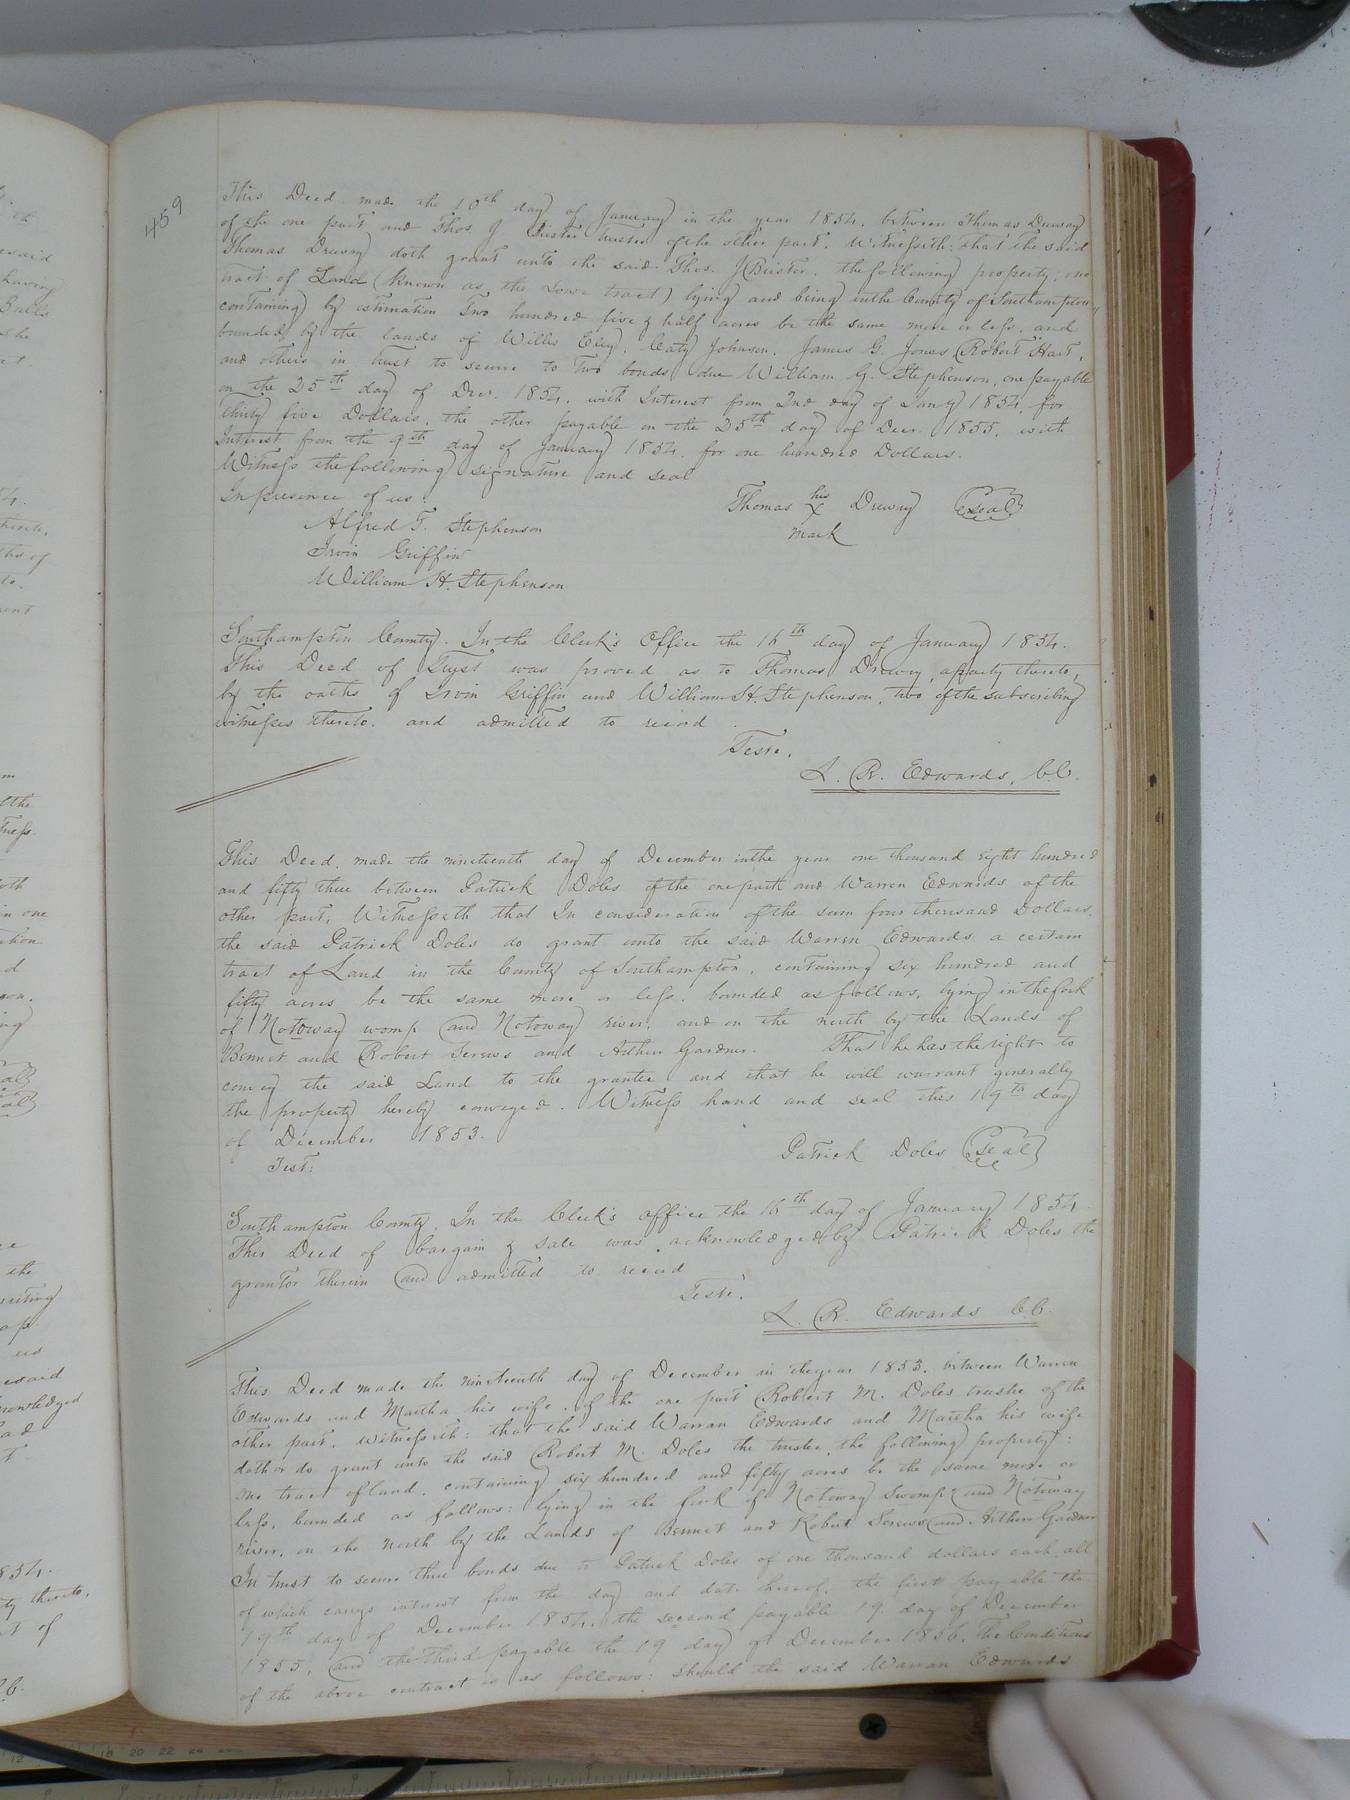 459
This Deed made the 10th day of January in the year 1854, between Thomas Drewry
of the one part and Thos. J Brister trustee of the other part, Witnesseth: that the said
Thomas Drewry doth grant unto the said Thos. J Brister, the following property: one
tract of Land (known as the Lowe tract) lying and being in the County of Southampton,
containing by estimation Two hundred five & half acres be the same more or less, and
bounded by the lands of Willis Eley, Caty Johnson, James G. Jones Robert Hart,
and others in trust to secure to Two bonds due William G. Stephenson, one payable
on the 25th day of Decr. 1854, with Interest from 2nd day of Jany 1854, for
thirty five Dollars, the other payable on the 25th day of Decr. 1855, with
Interest from the 9th day of January 1854 for one hundred Dollars.
Witness the following signature and seal
In presence of us:
Thomas his X mark Drewry (Seal)
Alfred T. Stephenson
Irvin Griffin
William H. Stephenson
Southampton County. In the Clerk's Office the 16th day of January 1854.
This Deed of Trust was proved as to Thomas Drewry, a party thereto,
by the oaths of Irvin Griffin and William H. Stephenson, two of the subscribing
witnesses thereto. and admitted to record.
Teste.
L. R. Edwards, C.C.
This Deed, made the nineteenth day of December in the year one thousand eight hundred
and fifty three between Patrick Doles of the one part and Warren Edwards of the
other part, Witnesseth that In consideration of the sum four thousand Dollars,
the said Patrick Doles do grant unto the said Warren Edwards a certain
tract of Land in the County of Southampton, containing six hundred and
fifty acres be the same more or less, bounded as follows, lying in the fork
of Notoway womp and Notoway river, and on the north by the Lands of
Bennet and Robert Screws and Arthur Gardner. That he has the right to
convey the said Land to the grantee and that he will warrant generally
the property hereby conveyed. Witness hand and seal this 19th day
of December 1853.
Patrick Doles (Seal)
Test:
Southampton County. In the Clerk's office the 16th day of January 1854
This Deed of bargain & sale was acknowledged by Patrick Doles the
grantor therein and admitted to record
Teste.
L. R. Edwards C.C.
This Deed made the nineteenth day of December in the year 1853, between Warren
Edwards and Martha his wife, of the one part Robert M. Doles trustee of the
other part, Witnesseth: that the said Warren Edwards and Martha his wife
doth or do grant unto the said Robert M. Doles the trustee, the following property:
one tract of land, containing six hundred and fifty acres be the same more or
less, bounded as follows: lying in the fork of Notoway Swomp and Notoway
river, on the north by the Lands of Bennet and Robert Screws and Arthur Gardner
In trust to secure three bonds due to Patrick Doles of one thousand dollars each, all
of which carrys interest from the day and date hereof, the first payable the
19th day of December 1854, the second payable 19 day of December
1855, and the third payable the 19 day of December 1856. The Conditions
of the above contract is as follows: should the said Warran Edwards